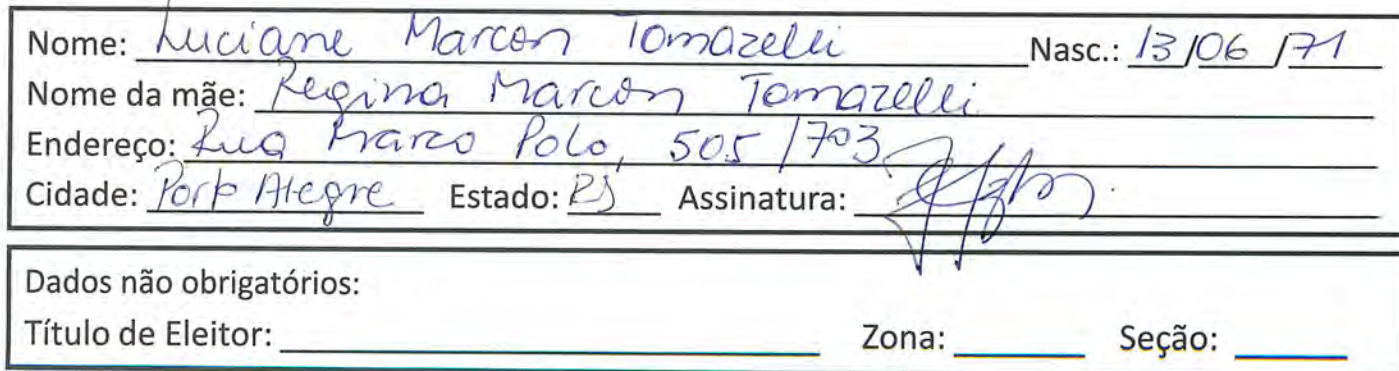 Nome: Luciane Marcon Tomazelli Nasc.: 13/06/71
Nome da mãe: Regina Marcon Tomazelli
Endereço: Rua Marco Polo, 505/703
Cidade: Porto Alegre Estado: RS Assinatura:
Dados não obrigatórios:
Título de Eleitor: Zona: Seção: